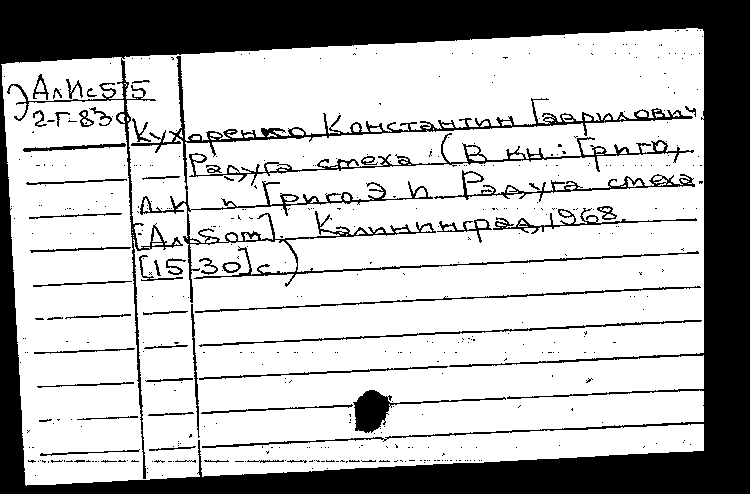 Э АлИс575
2-Г-830
Кухаренко, Константин Гаврилович.
Радуга смеха. (В кн.: Григо,
Л. И. и Григо, Э. И. Радуга смеха.
[Альбом]. Калининград, 1968.
[15-30] с.).